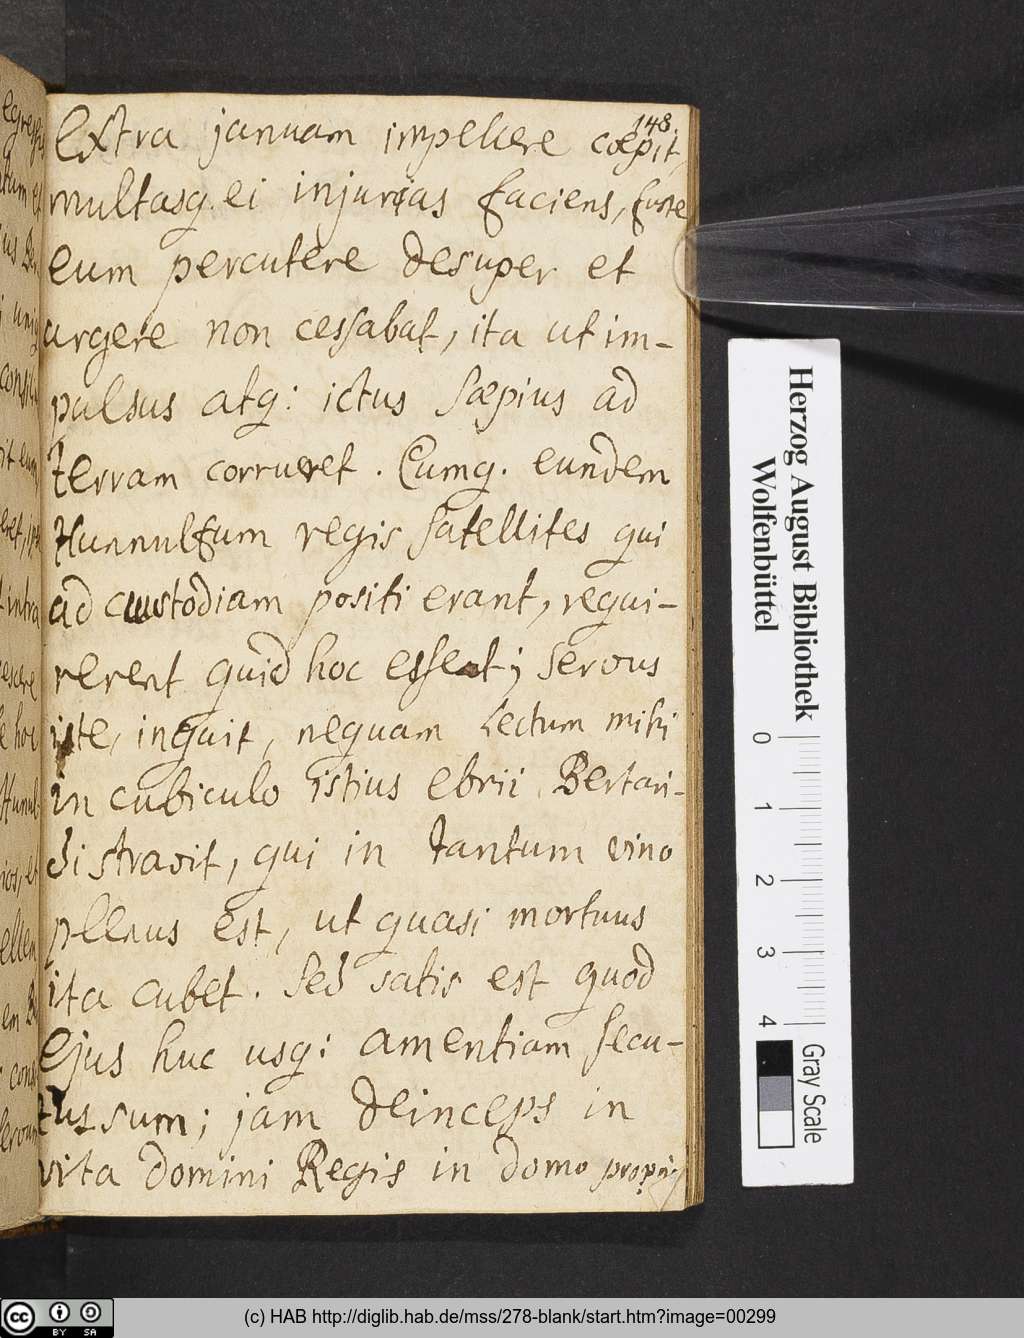 148.
extra januam impellere cœpit,
multasq. ei injurias faciens, fuste
eum percutere desuper et
urgere non cessabat, ita ut im-
pulsus atq: ictus sæpius ad
terram corrueret. Cumq. eundem
Hunnulfum regis satellites qui
ad custodiam positi erant, requi-
rerent quid hoc esset; servus
iste, inquit, nequam lectum mihi
in cubiculo istius ebrii Bertari-
di stravit, qui in tantum vino
plenus est, ut quasi mortuus
ita cubet. Sed satis est quod
ejus huc usq: amentiam secu-
tus sum; jam deinceps in
vita domini Regis in domo
Herzog August Bibliothek
Wolfenbüttel
0 1 2 3 4
Gray Scale
cc BY SA
(c) HAB http://diglib.hab.de/mss/278-blank/start.htm?image=00299